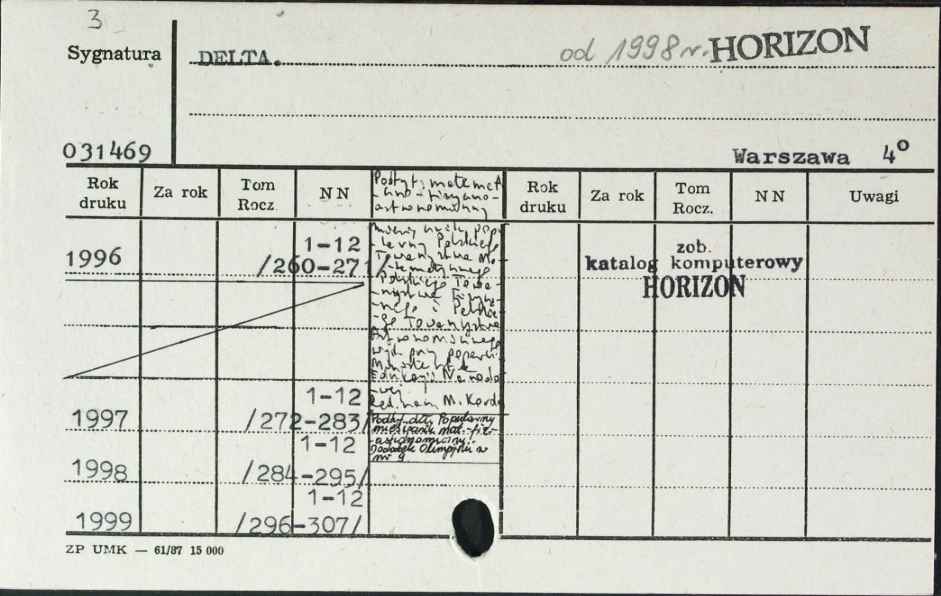 3
Sygnatura
DELTA.
od 1998 r. HORIZON
031469
Warszawa 4°
Rok druku
Za rok
Tom Rocz.
NN
Podtyt: matemat
-czno-fizyczno-
astronomiczny
Rok druku
Za rok
Tom Rocz.
NN
Uwagi
1996
1-12
/260-271/
Polskiego
Towarzystwa Ma
-tematycznego
Polskiego Towa-
Towarzystwa
Astronomicznego
wyd. przy poparciu
Edukacji Narodo
M. Kordo
zob.
katalog komputerowy
HORIZON
1997
1-12
/272-283/
Podtyt. Popularny
miesięcznik mat.-fiz-
astronomiczny.
nr 9.
1998
1-12
/284-295/
1999
1-12
/296-307/
ZP UMK — 61/87 15 000